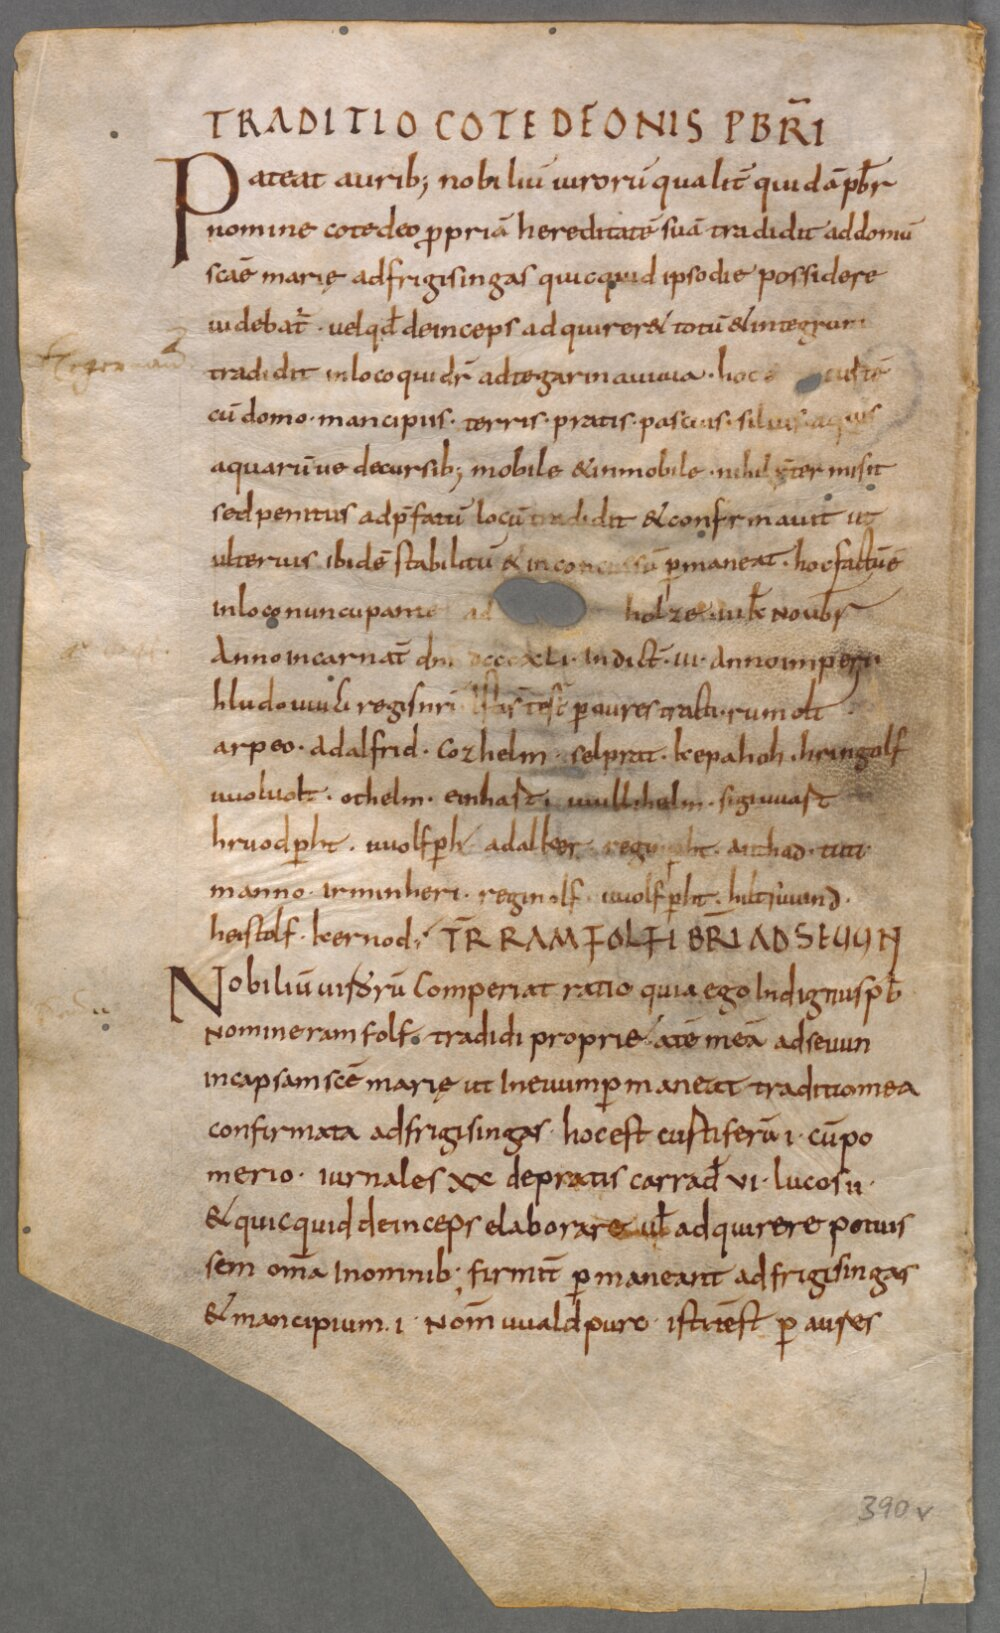 TRADITIO COTEDEONIS PBR̄I
Pateat aurib; nobiliū uirorū qualit̄ quidā pb̄r
nomine cotedeo ꝓpriā hereditatē suā tradidit ad domū
scāe marię ad frigisingas quicquid ipso die possidere
uidebat̄ · uel qd̄ deinceps adquirer& totū & integrum
tradidit in loco qui dr̄ ad tegarinauuua · hoc
cū domo · mancipiis · terris · pratis · pascuis · siluis · aquis
aquarūue decursib; mobile & inmobile · nihil p̄termisit
sed penitus ad p̄fatū locū tradidit & confirmauit ut
ulterius ibidē stabilitū & inconcussū ꝑmaneat · hoc factū ē
in loco nuncupante ad holze · uii k̄ noub̄r
Anno incarnat̄ dni dcccxli · Indict̄ · iii · anno imperii
hludouuici regis nr̄i Isti sī test̄ ꝑ aures tracti · rumolt
arpeo · adalfrid · cozhelm · selprat · kepahoh · hringolf
uuoluolt · othelm · einhast · uuillihelm · sigiuuast
hruodꝑht · uuolfꝑht adalker reginꝑht · anthad · tuti
manno · irminheri · reginolf · uuolfꝑht · hiltiuuind ·
heistolf · kernod · TR̄ RAMFOLFI BR̄I AD SEUUN
Nobiliū uirorū Comperiat ratio quia ego Indignus pb̄
Nomine ramfolf · tradidi proprietatē meā ad seuun
in capsam scē marię ut In euum ꝑmaneat traditio mea
confirmata ad frigisingas · hoc est custiferā · i · cū po
merio · iurnales xx de pratis carrad̄ vi · lucos ii ·
& quicquid deinceps elaborare ul̄ adquirere potuis
sem om̄a In omnib; firmit̄ ꝑmaneant ad frigisingas
& mancipium · i · Nom̄ uualdpurc · isti test̄ ꝑ aures
390v